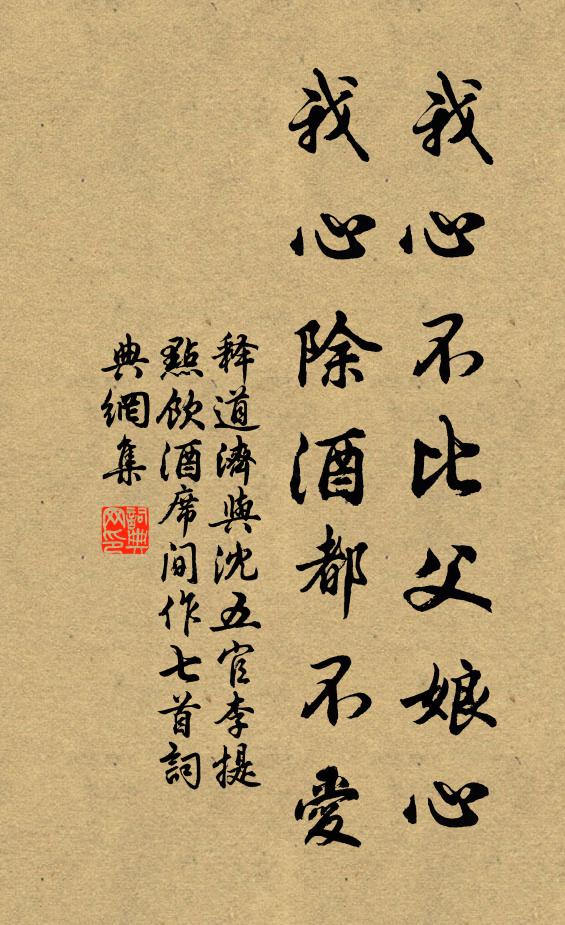 我心不比父娘心
我心除酒都不愛
釋道濟與沈五官李提
點飲酒席間作七首詞
典網集
詞典
网印